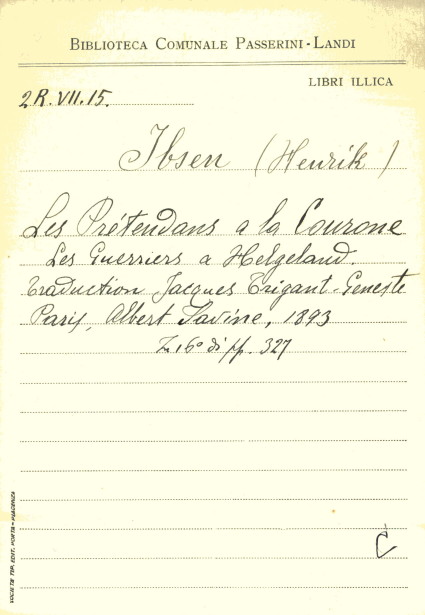 BIBLIOTECA COMUNALE PASSERINI-LANDI
LIBRI ILLICA
2R.VII.15.
Ibsen (Henrik)
Les Prétendans a la Courone
Les Guerriers a Helgeland.
Traduction Jacques Trigant-Geneste
Paris, Albert Savine, 1893
In 16° di pp. 327
C